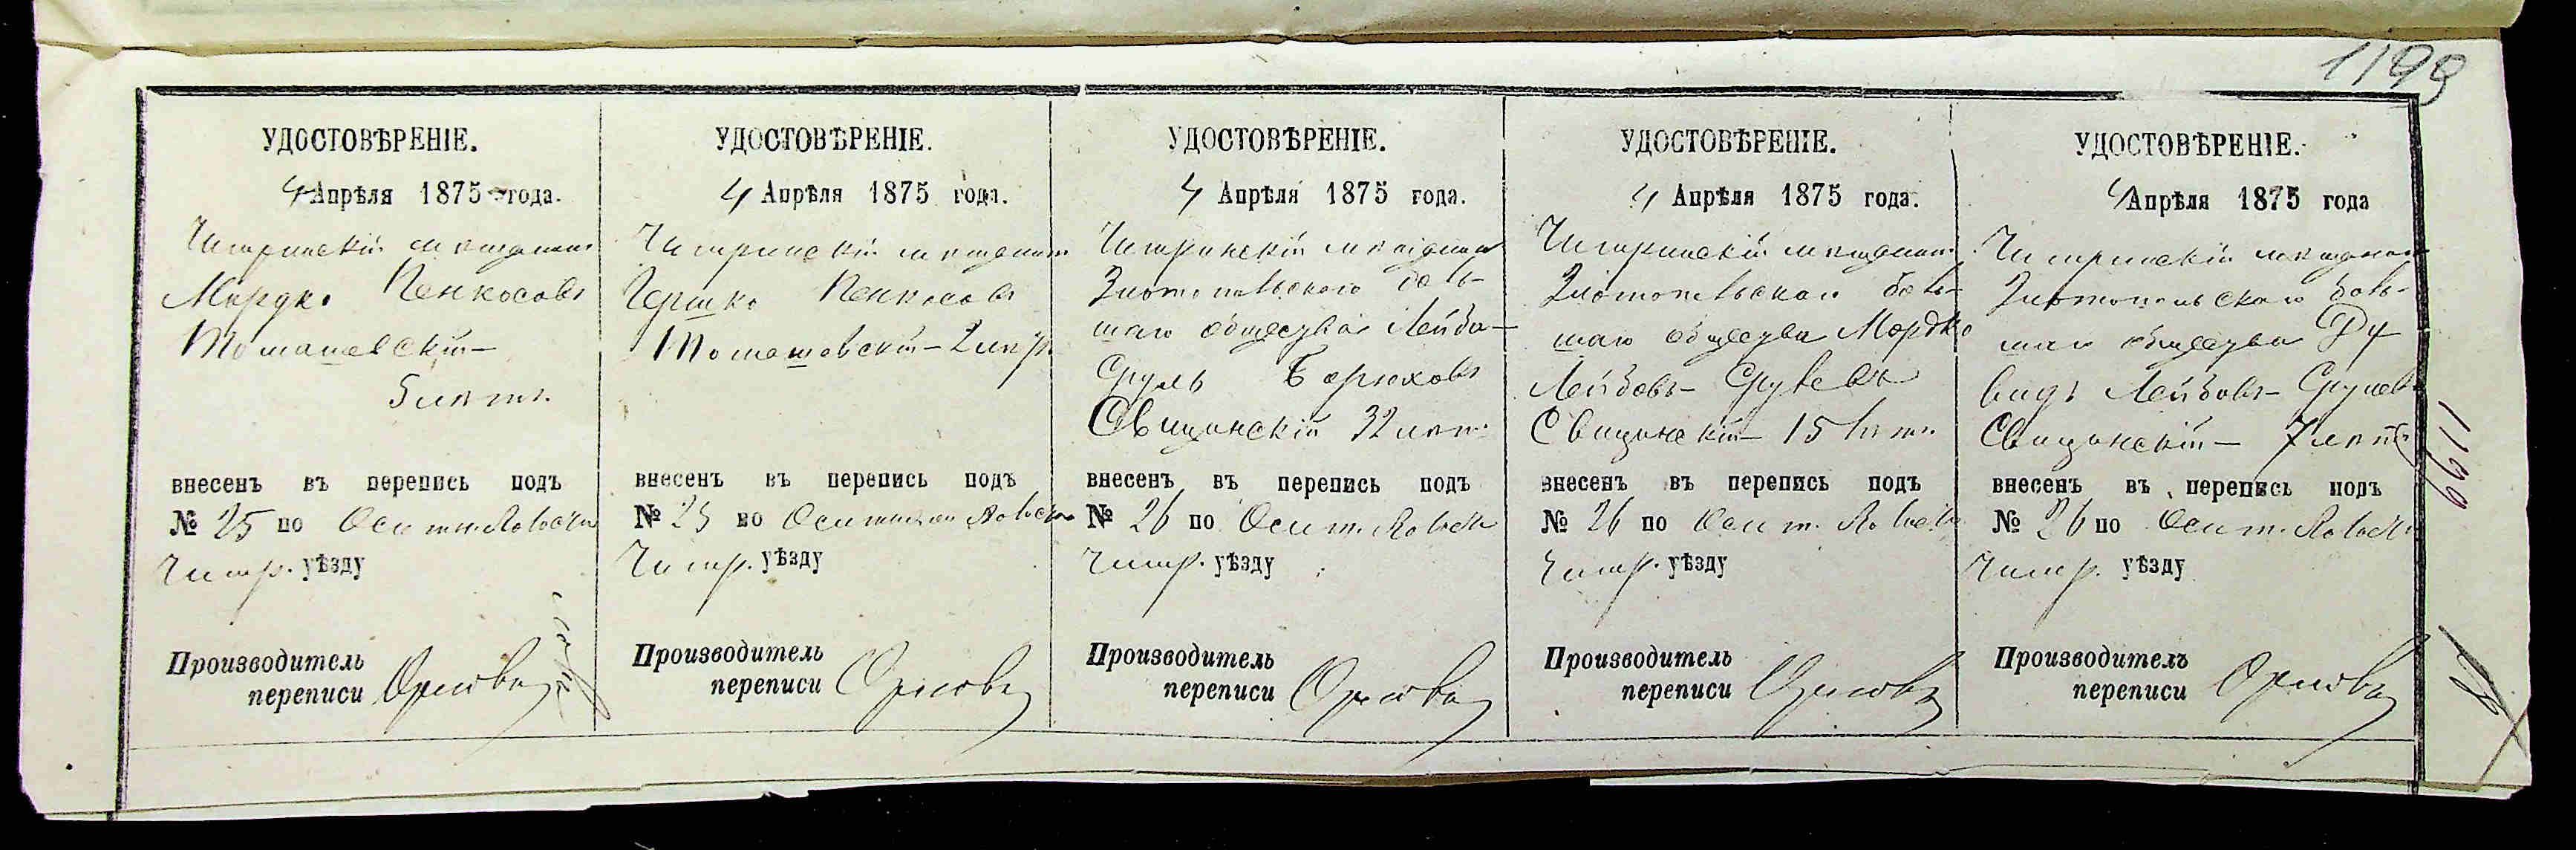 1199
УДОСТОВѢРЕНІЕ.
4 Апрѣля 1875 года.
Чигринскій мѣщанинъ
Мордко Пенкосовъ
Томашевскій –
5 лѣтъ.
внесенъ въ перепись подъ
№ 25 по
Чигр. уѣзду
Производитель
переписи Орлова
УДОСТОВѢРЕНІЕ.
4 Апрѣля 1875 года.
Чигринскій мѣщанинъ
Гершко Пенкосовъ
Томашовскій – 2 лѣтъ
внесенъ въ перепись подъ
№ 25 по
Чигр. уѣзду
Производитель
переписи Орлова
УДОСТОВѢРЕНІЕ.
4 Апрѣля 1875 года.
Чигринскій мѣщанинъ
Златопольскаго боль-
шаго общества Лейба –
Сруль Борюховъ
Свицинскій 32 лѣтъ
внесенъ въ перепись подъ
№ 26 по
Чигр. уѣзду
Производитель
переписи Орлова
УДОСТОВѢРЕНІЕ.
4 Апрѣля 1875 года.
Чигринскій мѣщанинъ
Златопольскаго боль-
шаго общества Мордко
Лейбовъ – Срулевъ
Свицинскій – 15 лѣтъ
внесенъ въ перепись подъ
№ 26 по
Чигр. уѣзду
Производитель
переписи Орлова
УДОСТОВѢРЕНІЕ.
4 Апрѣля 1875 года
Чигринскій мѣщанинъ
Златопольскаго боль-
шаго общества Ду
видъ Лейбовъ – Срулевъ
Свицинскій – 7 лѣтъ
внесенъ въ перепись подъ
№ 26 по
Чигр. уѣзду
Производитель
переписи Орлова
1199